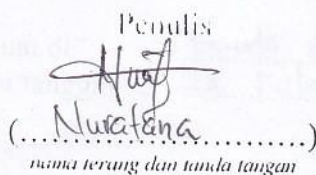 Penulis
(Nuratana)
nama terang dan tanda tangan